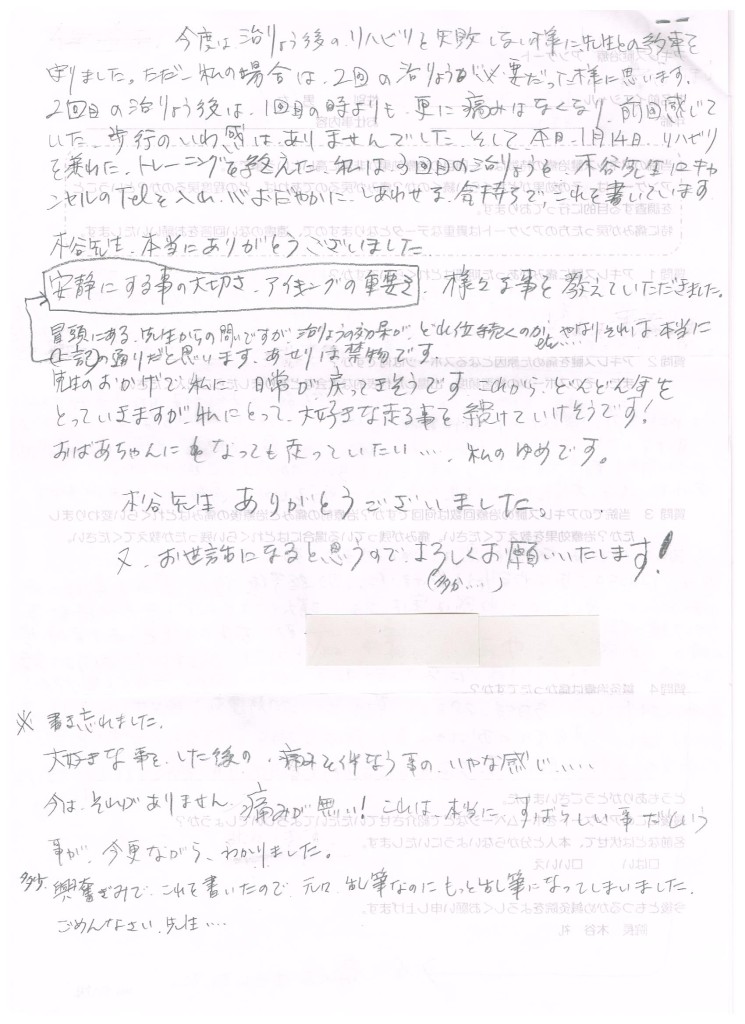 今度は治りょう後の、リハビリを失敗しない様に先生との約束を
守りました。ただ、私の場合は、2回の治りょうが必要だった様に思います。
2回目の治りょう後は、1回目の時よりも、更に痛みはなくなり、前回感じて
いた、歩行のいわ感はありませんでした。そして、本日、1月14日、リハビリ
を兼ねた、トレーニングを終えた、私は3回目の治りょうを、木谷先生にキャ
ンセルのTelを入れ、心おだやかに、しあわせな気持ちで、これを書いています
木谷先生、本当にありがとうございました
安静にする事の大切さ、アイシングの重要さ、様々な事を教えていただきました。
冒頭にある、先生からの問いですが治りょうの効果が、どれ位続くのか etc… やはりそれは、本当に
上記の通りだと思います。あせりは禁物です。
先生のおかげで、私に、日常が戻ってきそうです。これから、どんどん年を
とっていきますが、私にとって、大好きな走る事を続けていけそうです!
おばあちゃんになっても走っていたい…、私のゆめです。
木谷先生 ありがとうございました。
又、お世話になると思うので、よろしくお願いいたします!
(多分……)
※ 書き忘れました。
大好きな事を、した後の、痛みを伴なう事の、いやな感じ……
今は、それがありません。痛みが無い! これは、本当に、すばらしい事だという
事が、今更ながら、わかりました。
興奮ぎみで、これを書いたので、元々、乱筆なのにもっと乱筆になってしまいました、
ごめんなさい、先生…